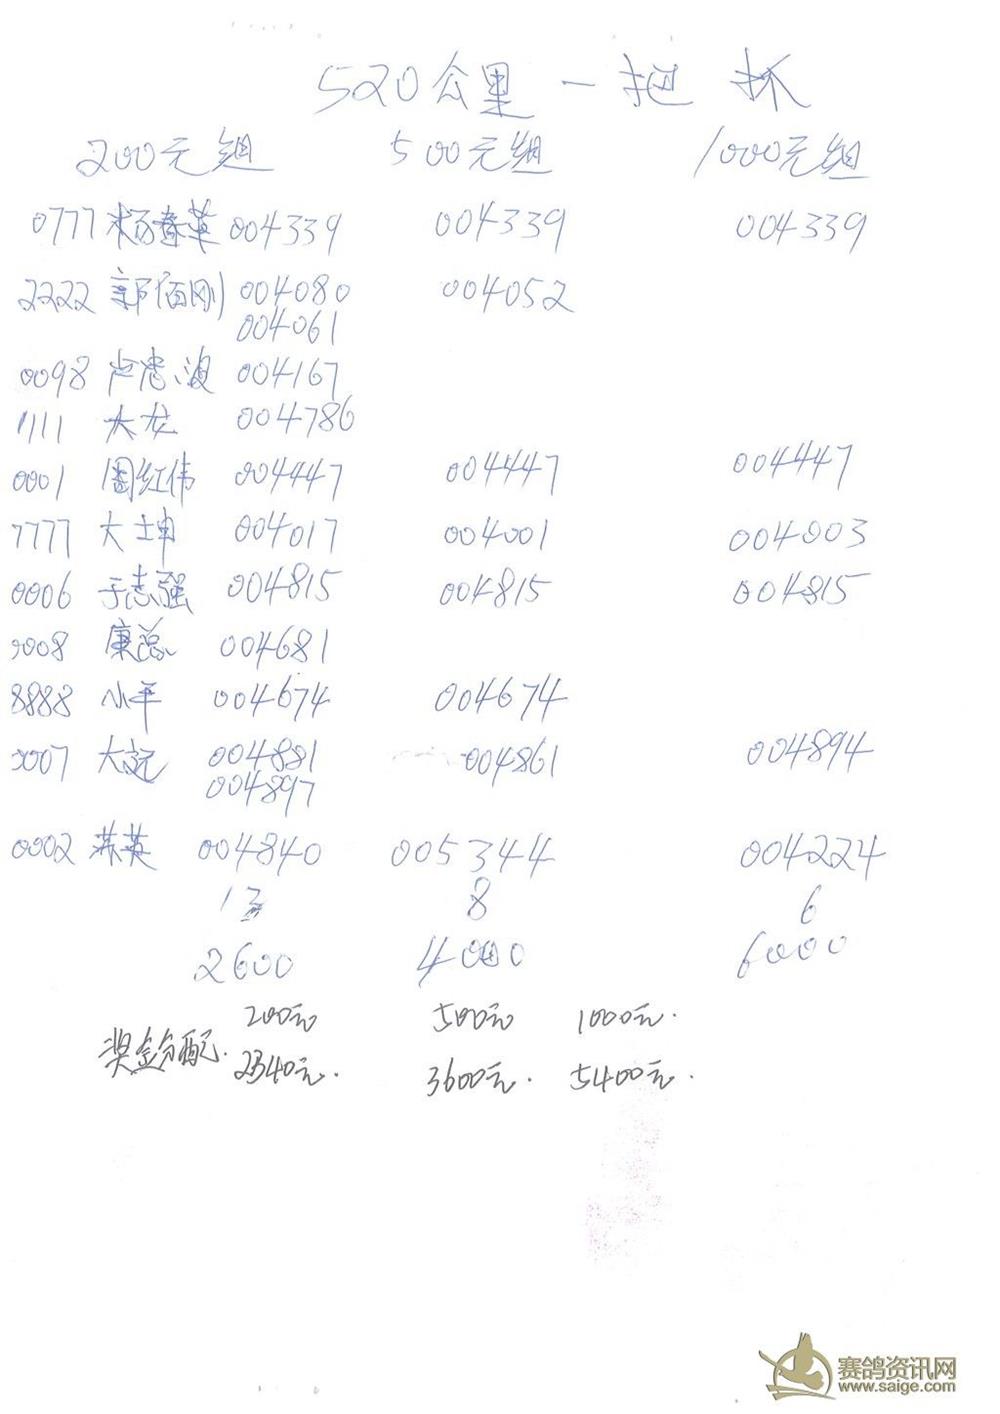 520公里 一把抓
200元组 500元组 1000元组
0777 杨春革 004339 004339 004339
2222 郭佰刚 004080 004052
004061
0098 卢崇波 004167
1111 大龙 004786
0001 周红伟 004447 004447 004447
7777 大坤 004017 004001 004003
0006 于志强 004815 004815 004815
0008 康总 004681
8888 小平 004674 004674
0007 大远 004881 004861 004894
004897
0002 苏英 004840 005344 004224
13 8 6
2600 4000 6000
200元 500元 1000元.
奖金分配. 2340元. 3600元. 5400元.
赛鸽资讯网
www.saige.com